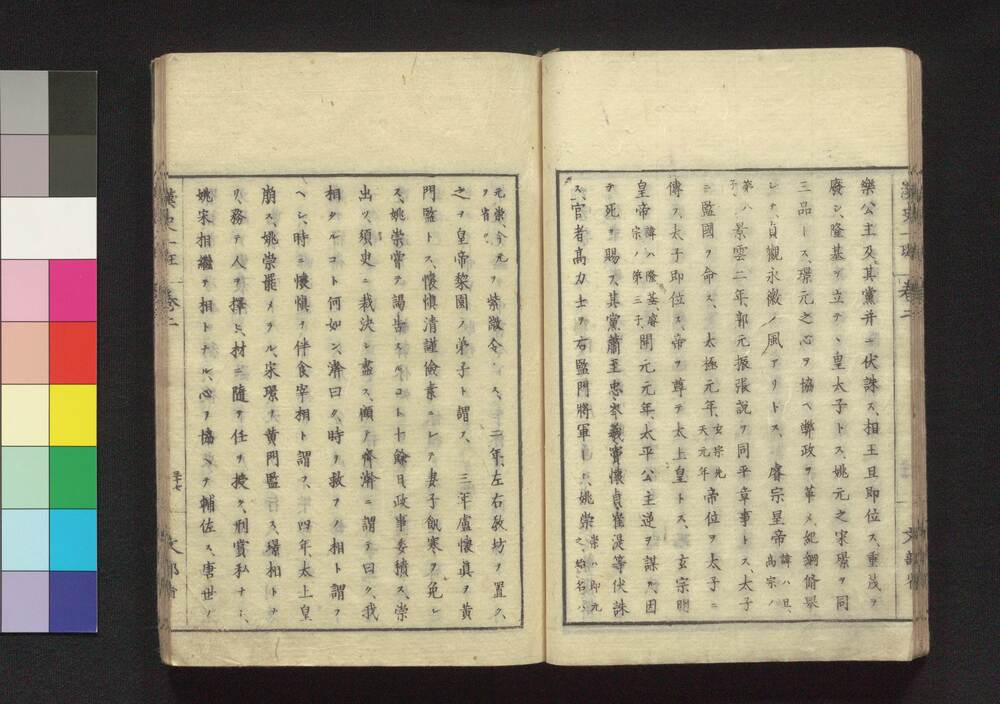 樂公主及其黨并ニ伏誅ス、相王旦即位ス、重茂ヲ
廢シ、隆基ヲ立テヽ皇太子トス、姚元之宋璟ヲ同
三品トス、璟元之心ヲ協ヘ弊政ヲ革メ、紀綱脩擧
シテ、貞觀永徽ノ風アリトス、睿宗皇帝 諱ハ旦、高宗ノ
第八子、景雲二年、郭元振張說ヲ同平章事トス、太子
ニ監國ヲ命ス、太極元年、玄宗先天元年 帝位ヲ太子ニ
傳ス、太子即位ス、帝ヲ尊テ太上皇トス、玄宗明
皇帝 諱ハ隆基、睿宗ノ第三子、開元元年、太平公主逆ヲ謀ク、因
テ死ヲ賜フ、其黨蕭至忠岑羲竇懷貞崔湜等伏誅
ス、宦者高力士ヲ右監門將軍トス、姚崇 崇ハ即元之、始名ハ
元崇、今元ヲ省ク、紫微令トス、二年、左右敎坊ヲ置ク、
之ヲ皇帝棃園ノ弟子ト謂フ、三年盧懷愼ヲ黃
門監トス、懷愼清謹儉素ニシテ妻子飢寒ヲ免レ
ス、姚崇嘗テ謁告スルコト十餘日政事委積ス、崇
出ツ、須臾ニ裁決シ盡ス、顧テ齊澣ニ謂テ曰ク、我
相タルコト何如ン、澣曰ク、時ヲ救フノ相ト謂フ
ヘシ、時ニ懷愼ヲ伴食宰相ト謂フ、四年、太上皇
崩ス、姚崇罷メラル、宋璟ヲ黃門監トス、璟相トナ
リ、務テ人ヲ擇ヒ、材ニ隨テ任ヲ授ク、刑賞私ナシ、
姚宋相繼テ相トナル、心ヲ協ヘテ輔佐ス、唐世ノ
卷二
三十七
文部省